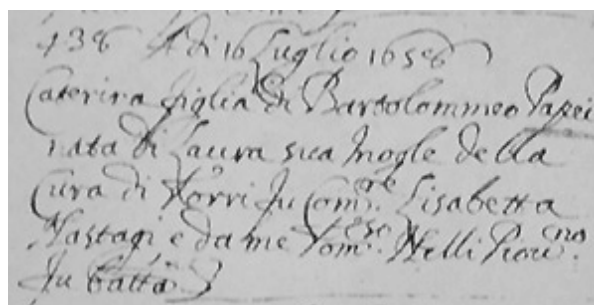 438 A di 16 Luglio 1658
Caterina figlia di Bartolommeo Papei
nata di Laura sua Mogle della
Cura di Torri fu Com.re Lisabetta
Nastagi e da me Tom.so Nelli Piou.no
fu batt.a